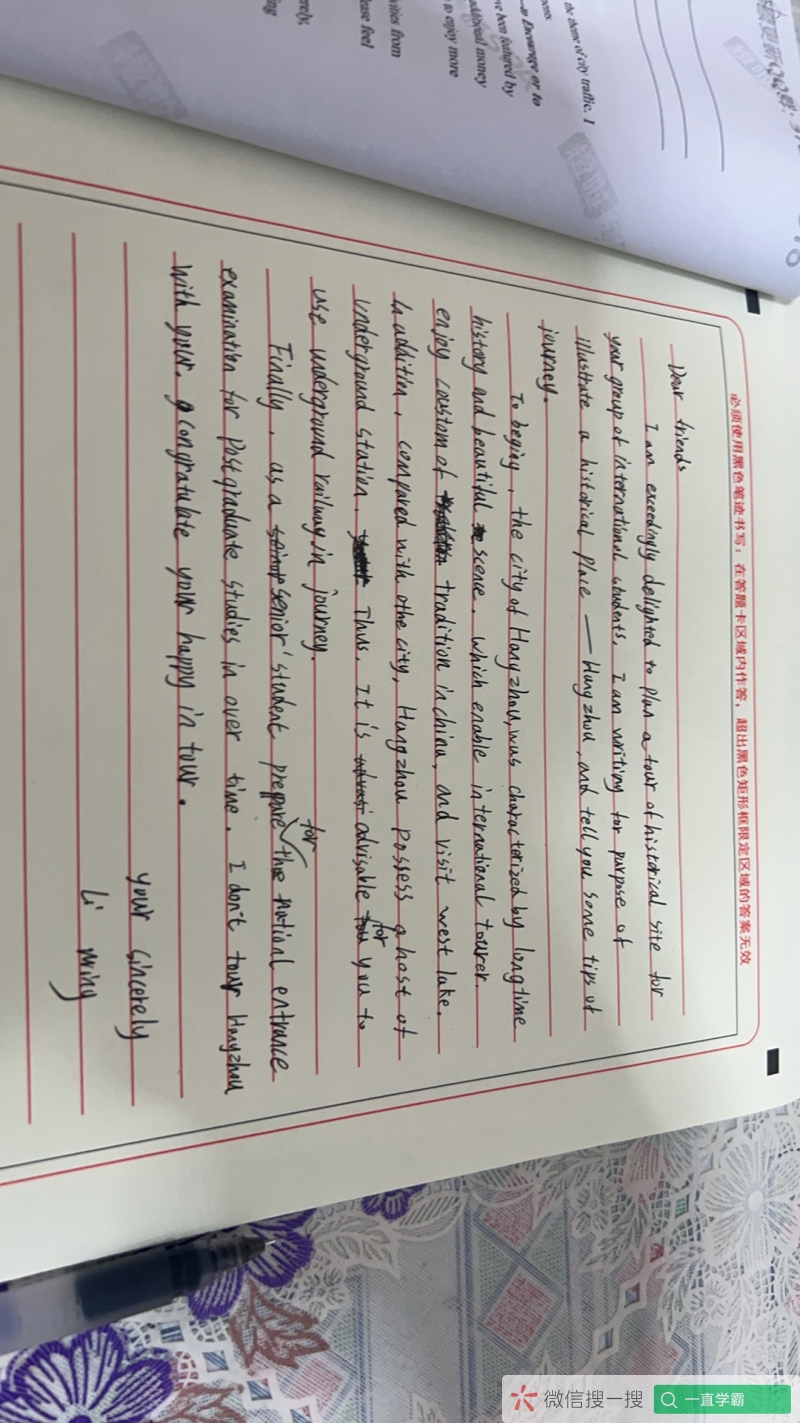 the theme of city traffic. I
Encourage or to
ve been featured by
additional money
to enjoy more
vities from
ease feel
rely,
ing
必须使用黑色笔迹书写；在答题卡区域内作答，超出黑色矩形框限定区域的答案无效
Dear friends
I am exceedingly delighted to plan a tour of historical site for
your group of international students. I am writing for purpose of
illustrate a historical place — Hangzhou, and tell you some tips of
journey.
To beging, the city of Hangzhou, was characterized by long time
history and beautiful scene, which enable international tourer.
enjoy coustom of tradition in china, and visit west lake.
In addition, compared with othe city, Hangzhou possess a host of
underground station. Thus, It is advisable for you to
use underground railway in journey.
Finally, as a senior student prepare for the national entrance
examination for postgraduate studies in over time. I don't tour Hangzhou
with your. congratulate your happy in tour.
your sincerely
Li ming
微信搜一搜
一直学霸